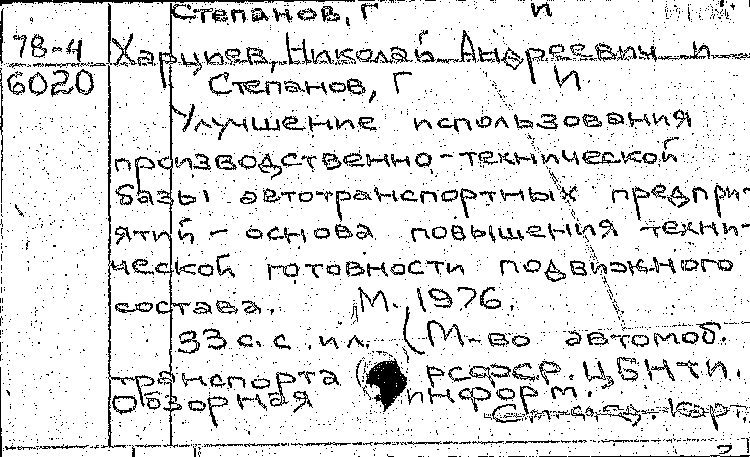 Степанов, Г И
78-4 Харциев, Николай Андреевич и
6020 Степанов, Г И
Улучшение использования
производственно-технической
базы автотранспортных предпри-
ятий - основа повышения техни-
ческой готовности подвижного
состава. М., 1976.
33 с. с ил. (М-во автомоб.
транспорта РСФСР. ЦБНТИ.
Обзорная информ.